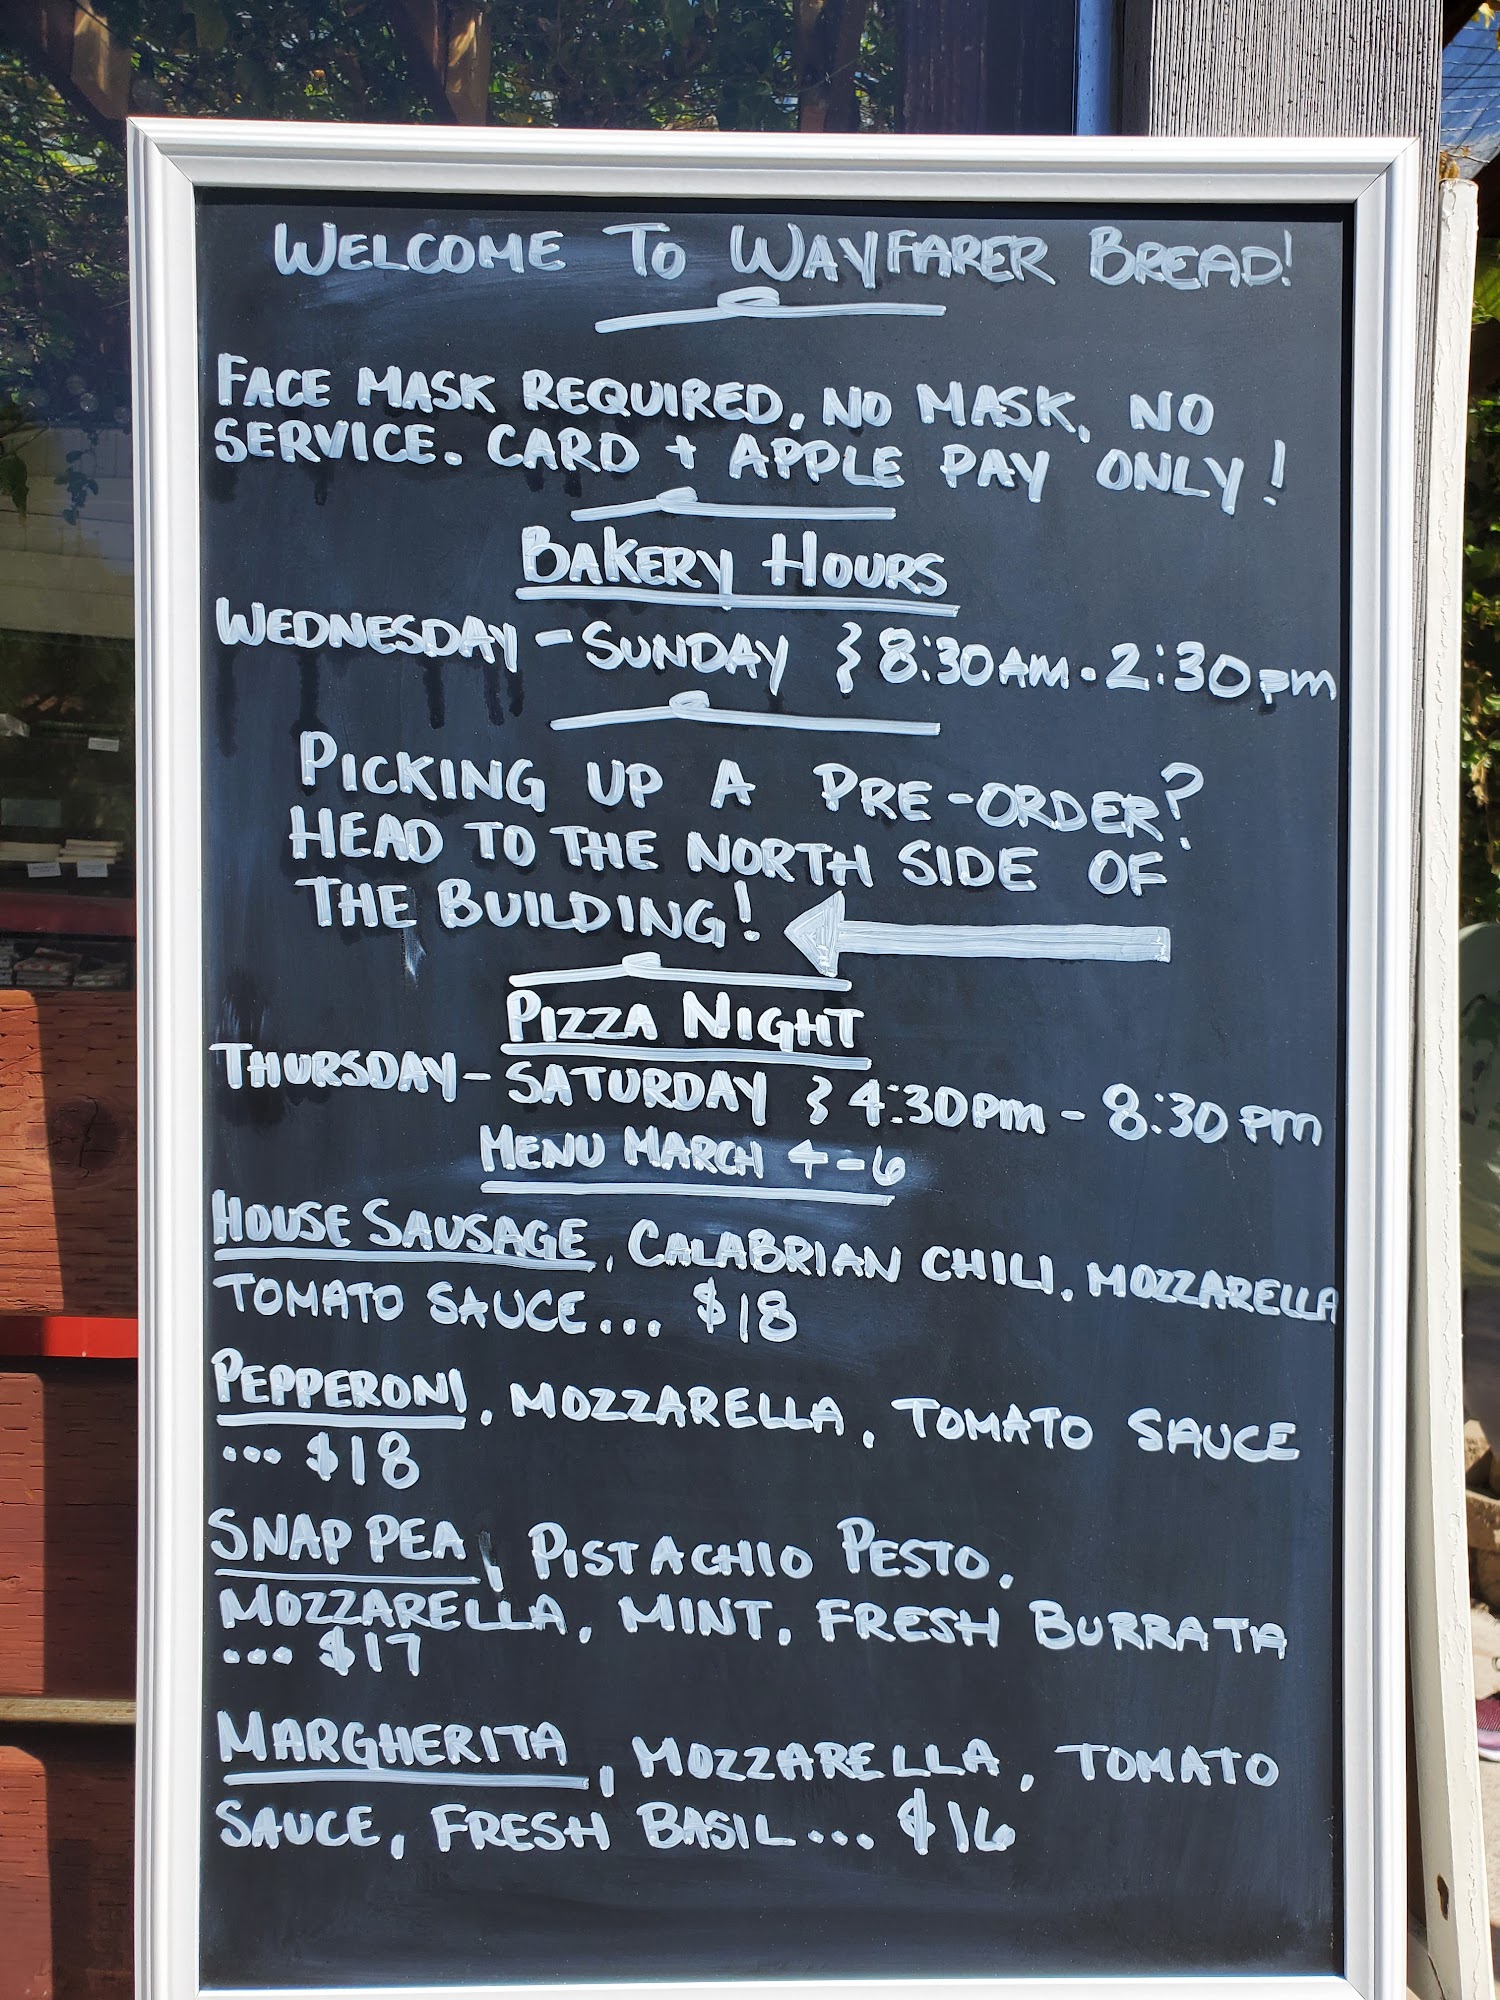 WELCOME TO WAYFARER BREAD!
FACE MASK REQUIRED, NO MASK, NO
SERVICE. CARD + APPLE PAY ONLY!
BAKERY HOURS
WEDNESDAY - SUNDAY } 8:30AM - 2:30pm
PICKING UP A PRE-ORDER?
HEAD TO THE NORTH SIDE OF
THE BUILDING!
PIZZA NIGHT
THURSDAY - SATURDAY } 4:30pm - 8:30pm
MENU MARCH 4-6
HOUSE SAUSAGE, CALABRIAN CHILI, MOZZARELLA
TOMATO SAUCE... $18
PEPPERONI, MOZZARELLA, TOMATO SAUCE
... $18
SNAP PEA, PISTACHIO PESTO,
MOZZARELLA, MINT, FRESH BURRATA
... $17
MARGHERITA, MOZZARELLA, TOMATO
SAUCE, FRESH BASIL... $16